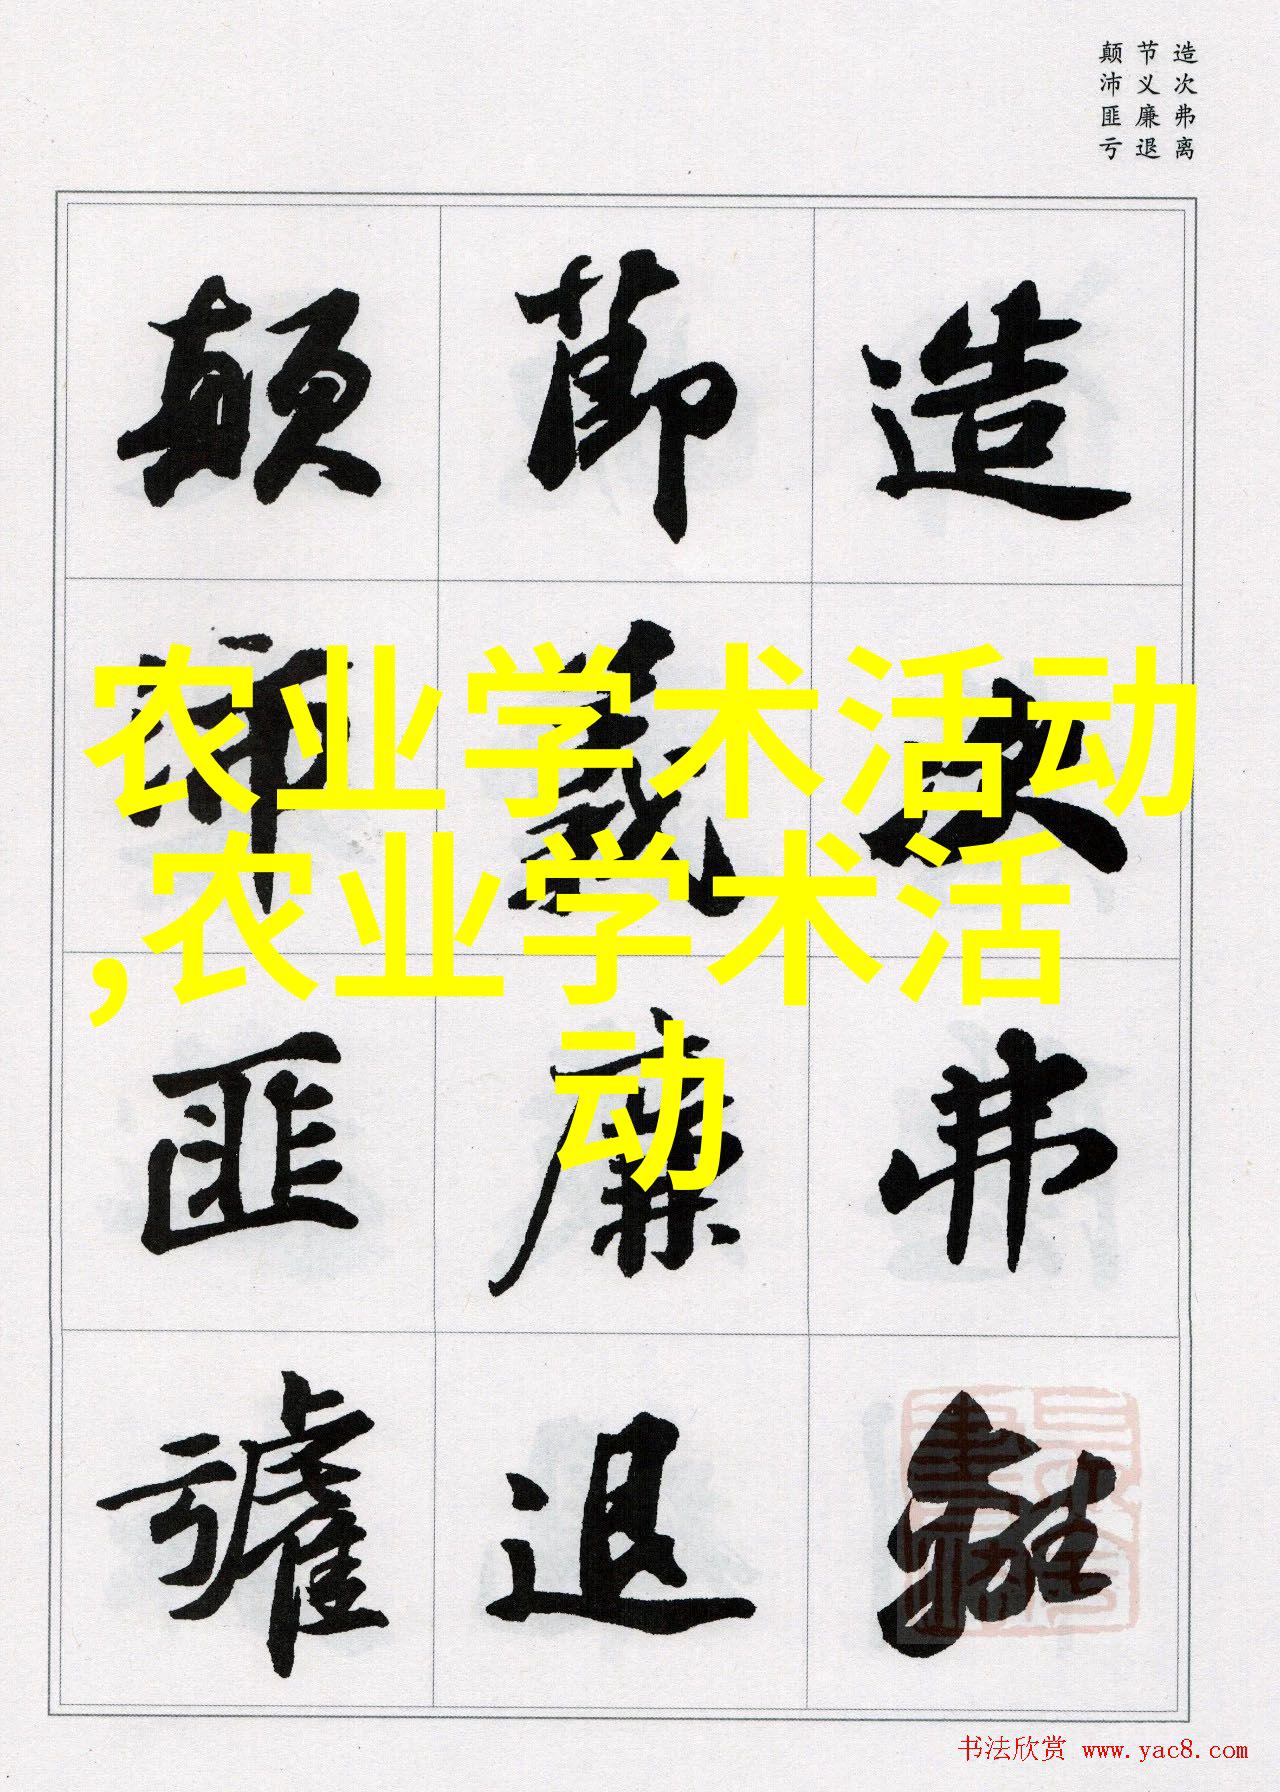 造次弗离
节义廉退
颠沛匪亏
造次弗離
節義廉退
顛沛匪虧
农业学术活动
,农业学术活
动
书法欣赏 www.yac8.com